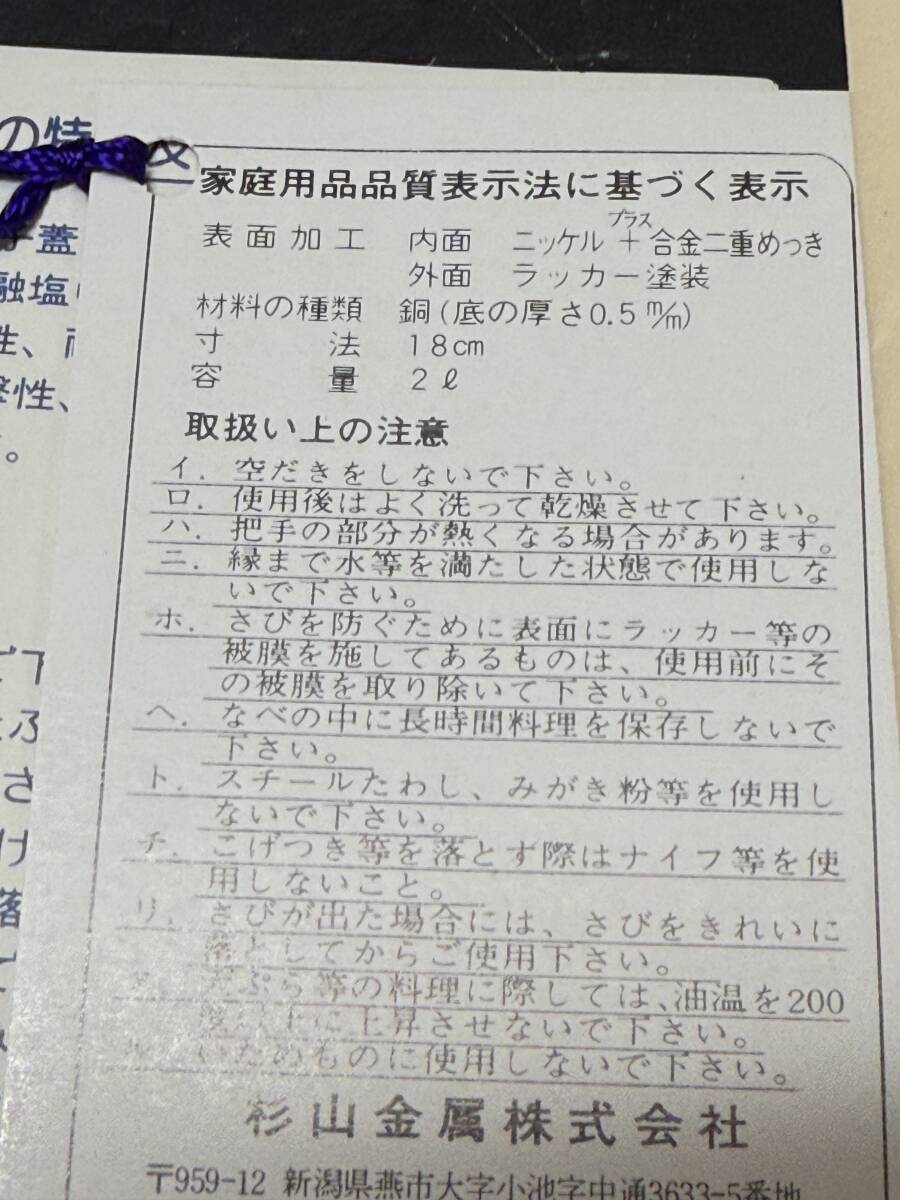 の特
蓋
融塩
性、
性、
。
家庭用品品質表示法に基づく表示
表面加工 内面 ニッケル＋合金二重めっき
プラス
外面 ラッカー塗装
材料の種類 銅(底の厚さ0.5 m/m)
寸法 18cm
容量 2ℓ
取扱い上の注意
イ. 空だきをしないで下さい。
ロ. 使用後はよく洗って乾燥させて下さい。
ハ. 把手の部分が熱くなる場合があります。
ニ. 縁まで水等を満たした状態で使用しな
いで下さい。
ホ. さびを防ぐために表面にラッカー等の
被膜を施してあるものは、使用前にそ
の被膜を取り除いて下さい。
ヘ. なべの中に長時間料理を保存しないで
下さい。
ト. スチールたわし、みがき粉等を使用し
ないで下さい。
チ. こげつき等を落とす際はナイフ等を使
用しないこと。
リ. さびが出た場合には、さびをきれいに
落としてからご使用下さい。
天ぷら等の料理に際しては、油温を200
度以上に上昇させないで下さい。
ル. いためものに使用しないで下さい。
杉山金属株式会社
〒959-12 新潟県燕市大字小池字中通3633-5番地